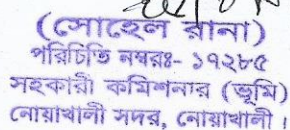 (সোহেল রানা)
পরিচিতি নম্বরঃ- ১৭২৮৫
সহকারী কমিশনার (ভূমি)
নোয়াখালী সদর, নোয়াখালী।